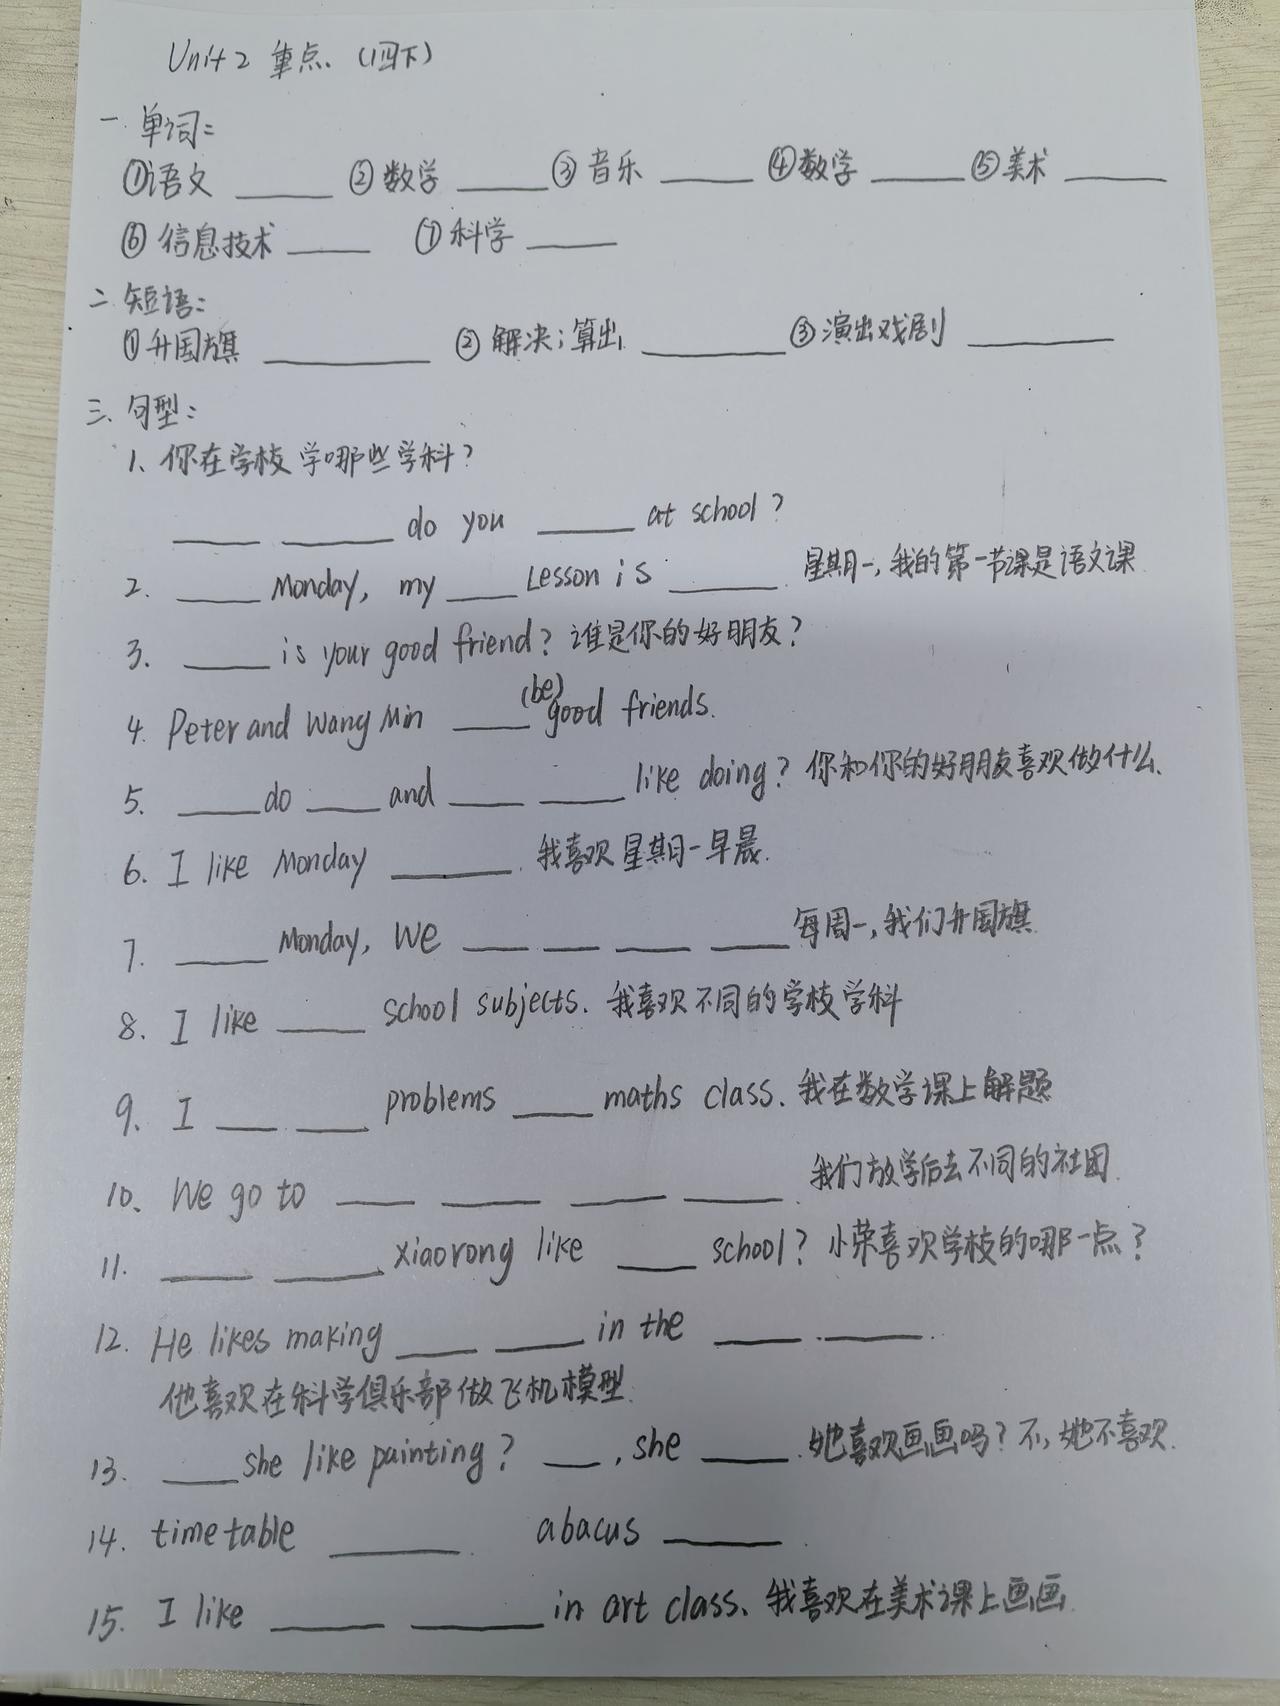 Unit 2 重点.（四下）
一. 单词:
①语文 ______ ②数学 ______ ③音乐 ______ ④数学 ______ ⑤美术 ______
⑥信息技术 ______ ⑦科学 ______
二. 短语:
①升国旗 ______ ②解决;算出 ______ ③演出戏剧 ______
三、句型:
1、你在学校学哪些学科?
______ ______ do you ______ at school?
2. ______ Monday, my ______ Lesson is ______. 星期一,我的第一节课是语文课.
3. ______ is your good friend? 谁是你的好朋友?
4. Peter and Wang Min ______ (be) good friends.
5. ______ do ______ and ______ ______ like doing? 你和你的好朋友喜欢做什么.
6. I like Monday ______. 我喜欢星期一早晨.
7. ______ Monday, We ______ ______ ______ ______ 每周一,我们升国旗.
8. I like ______ school subjects. 我喜欢不同的学校学科
9. I ______ ______ problems ______ maths class. 我在数学课上解题
10、We go to ______ ______ ______ ______. 我们放学后去不同的社团.
11. ______ ______ xiaorong like ______ school? 小荣喜欢学校的哪一点?
12. He likes making ______ ______ in the ______ ______.
他喜欢在科学俱乐部做飞机模型.
13. ______ she like painting? ______, she ______. 她喜欢画画吗? 不,她不喜欢.
14. timetable ______. abacus ______.
15. I like ______ ______ in art class. 我喜欢在美术课上画画.